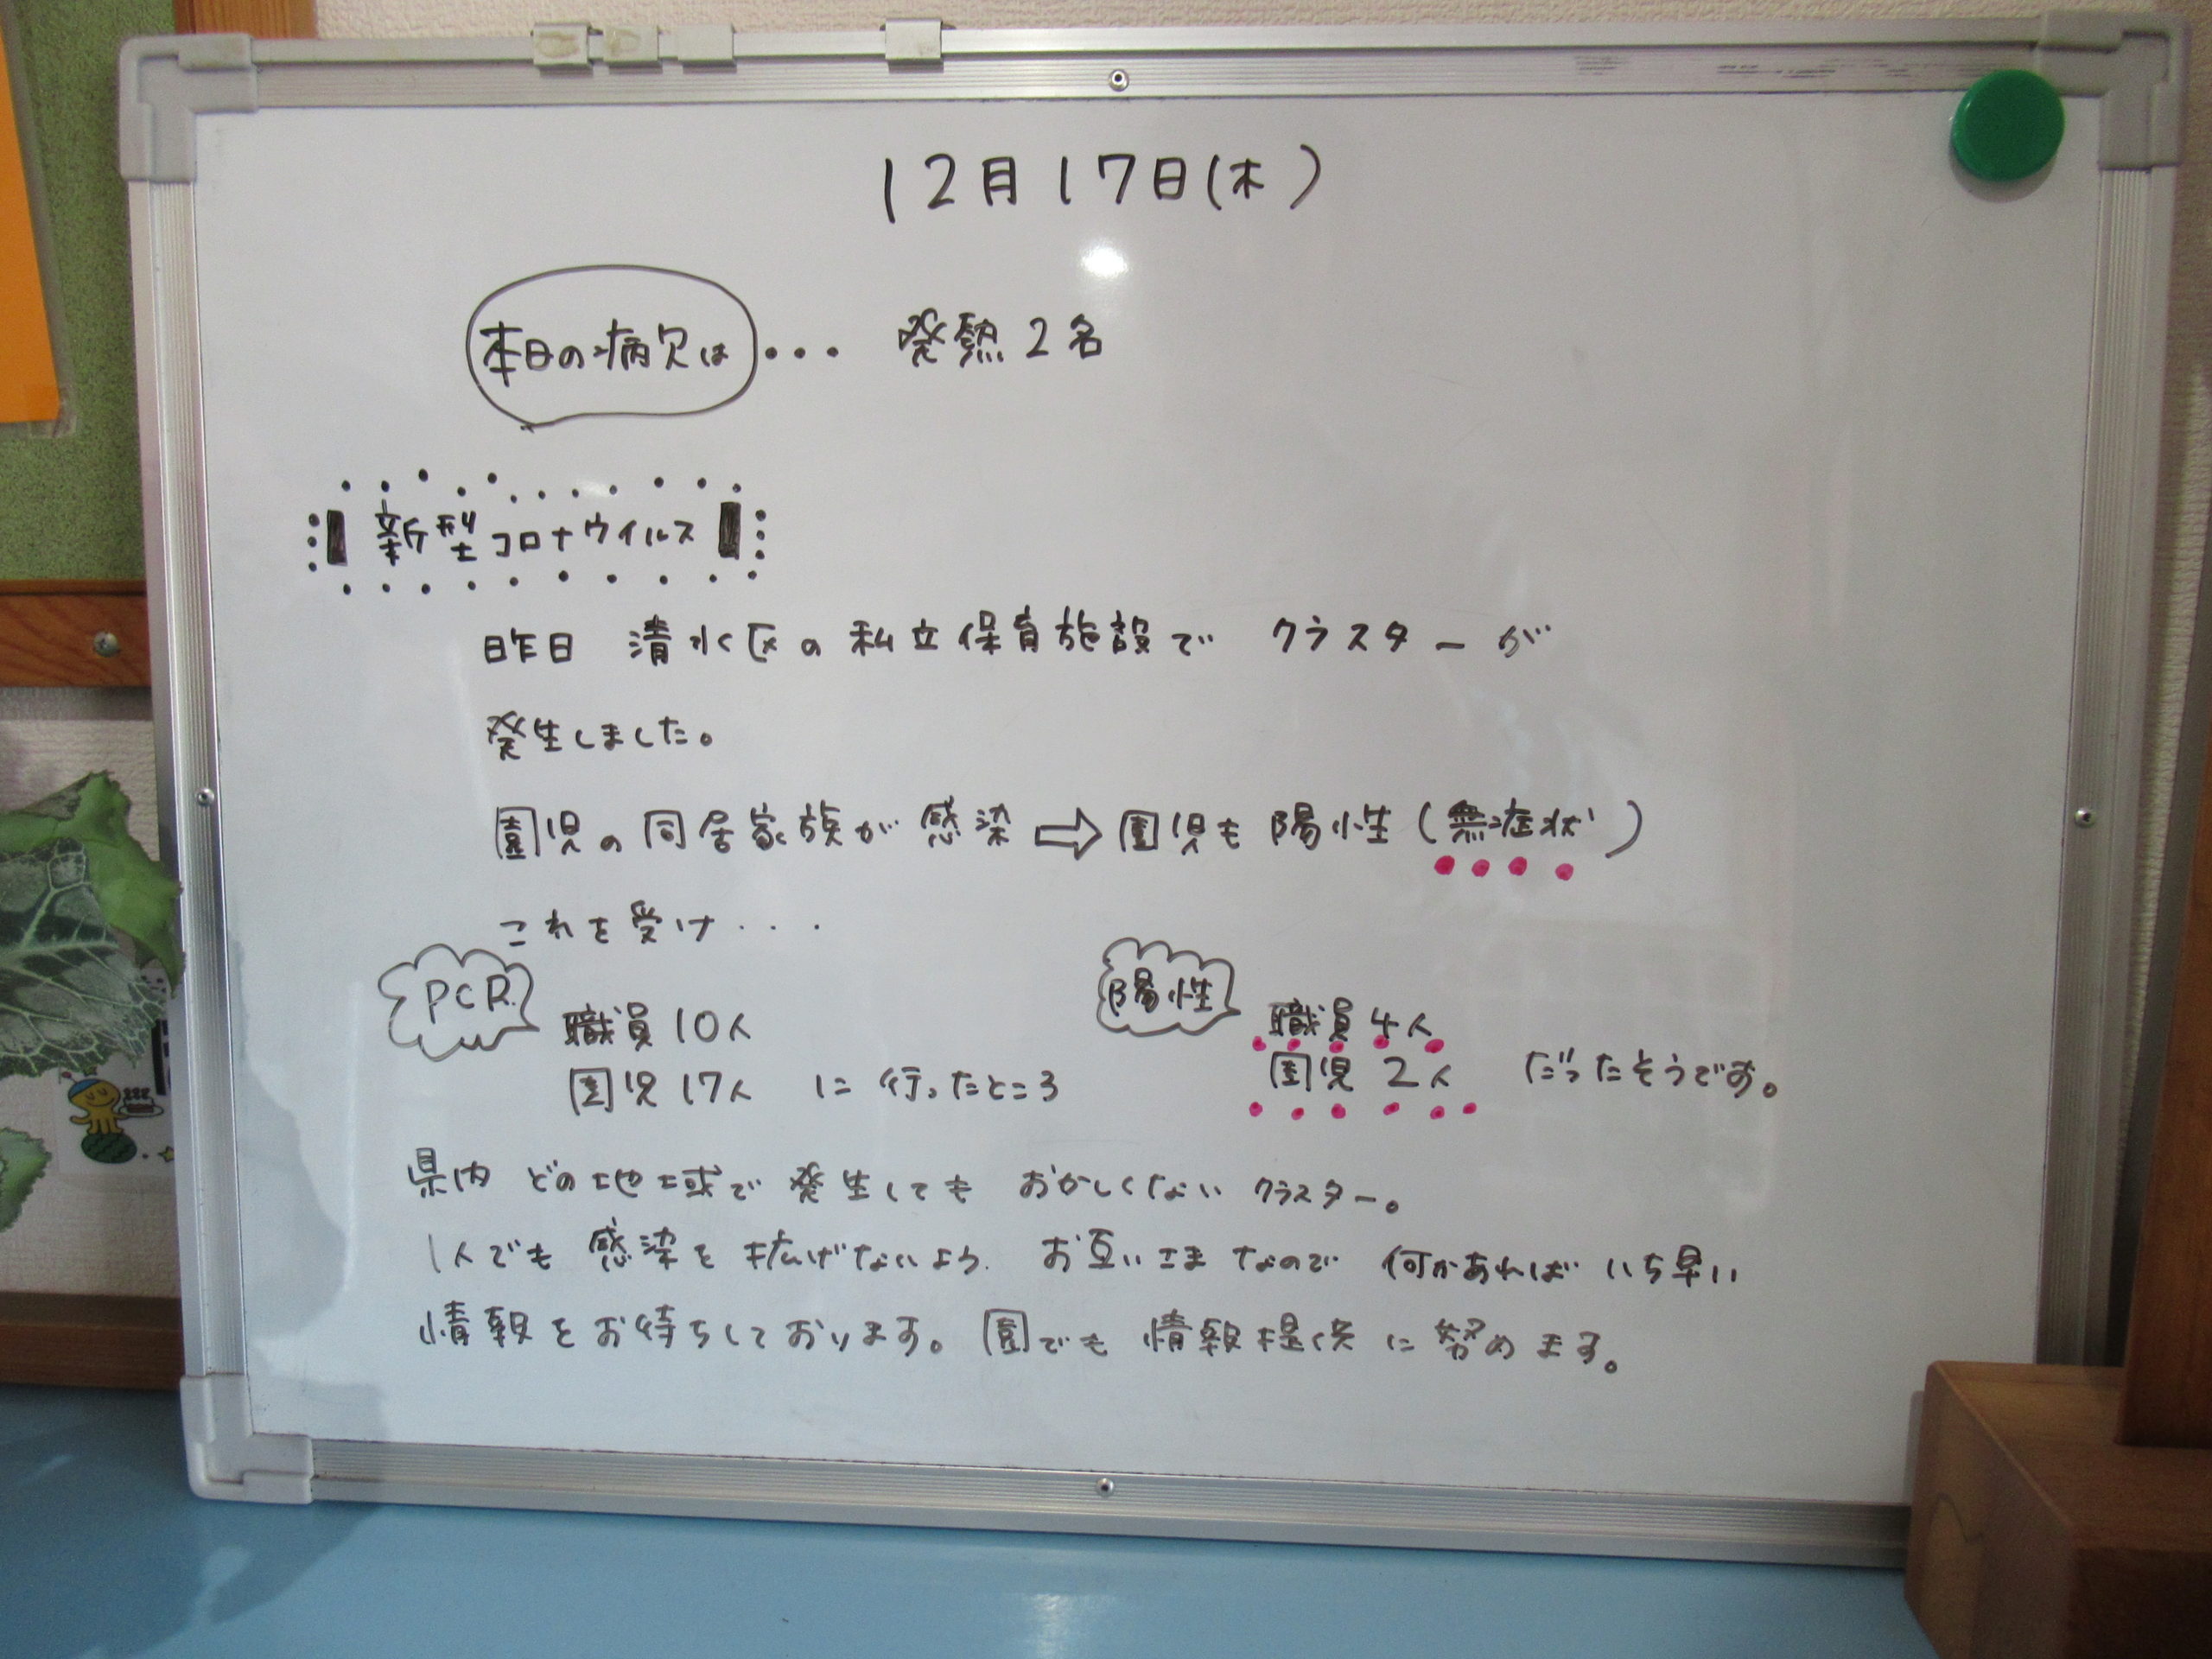 12月17日(木)
本日の病欠は ・・・ 発熱2名
新型コロナウイルス
昨日 清水区の私立保育施設で クラスターが
発生しました。
園児の同居家族が感染 ⇨ 園児も陽性(無症状)
これを受け・・・
PCR 職員10人
園児17人 に行ったところ
陽性 職員4人
園児2人 だったそうです。
県内 どの地域で発生しても おかしくない クラスター。
1人でも 感染を 拡げないよう. お互いさまなので 何かあれば いち早い
情報をお待ちしております。園でも 情報提供に努めます。